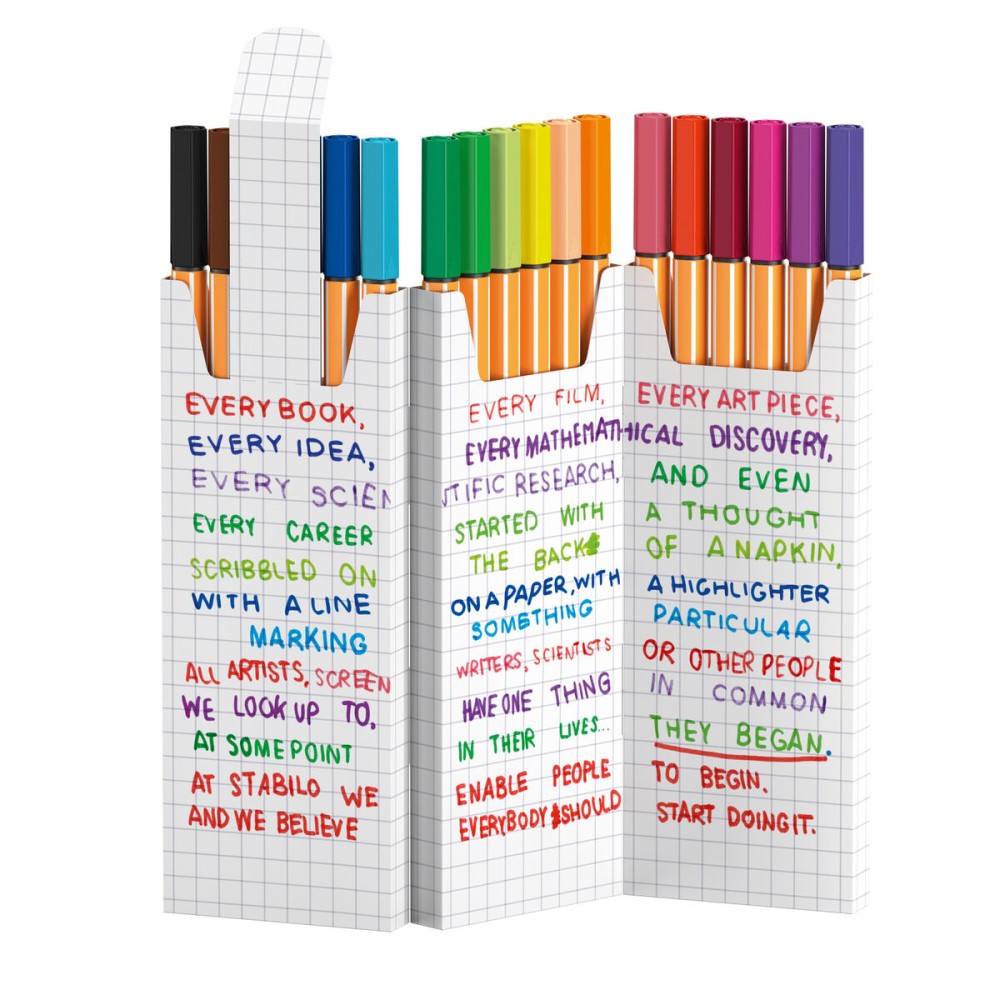 EVERY BOOK, EVERY FILM, EVERY ART PIECE,
EVERY IDEA, EVERY MATHEMATHICAL DISCOVERY,
EVERY SCIENTIFIC RESEARCH, AND EVEN
EVERY CAREER STARTED WITH A THOUGHT
SCRIBBLED ON THE BACK OF A NAPKIN,
WITH A LINE ON A PAPER, WITH A HIGHLIGHTER
MARKING SOMETHING PARTICULAR
ALL ARTISTS, SCREENWRITERS, SCIENTISTS OR OTHER PEOPLE
WE LOOK UP TO, HAVE ONE THING IN COMMON
AT SOME POINT IN THEIR LIVES... THEY BEGAN.
AT STABILO WE ENABLE PEOPLE TO BEGIN.
AND WE BELIEVE EVERYBODY SHOULD START DOING IT.